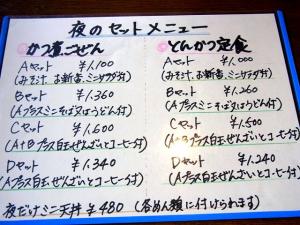 夜のセットメニュー
かつ煮ごぜん
Aセット ¥1,100
(みそ汁、お新香、ミニサラダ付)
Bセット ¥1,360
(Aプラスミニそば又はうどん付)
Cセット ¥1,600
(A+Bプラス白玉ぜんざいとコーヒー付)
Dセット ¥1,340
(Aプラス白玉ぜんざいとコーヒー付)
とんかつ定食
Aセット ¥1,000
(みそ汁、お新香、ミニサラダ付)
Bセット ¥1,260
(Aプラスミニそば又はうどん付)
Cセット ¥1,500
(A+Bプラス白玉ぜんざいとコーヒー付)
Dセット ¥1,240
(Aプラス白玉ぜんざいとコーヒー付)
夜だけミニ天丼 ¥480 (各めん類に付けられます)